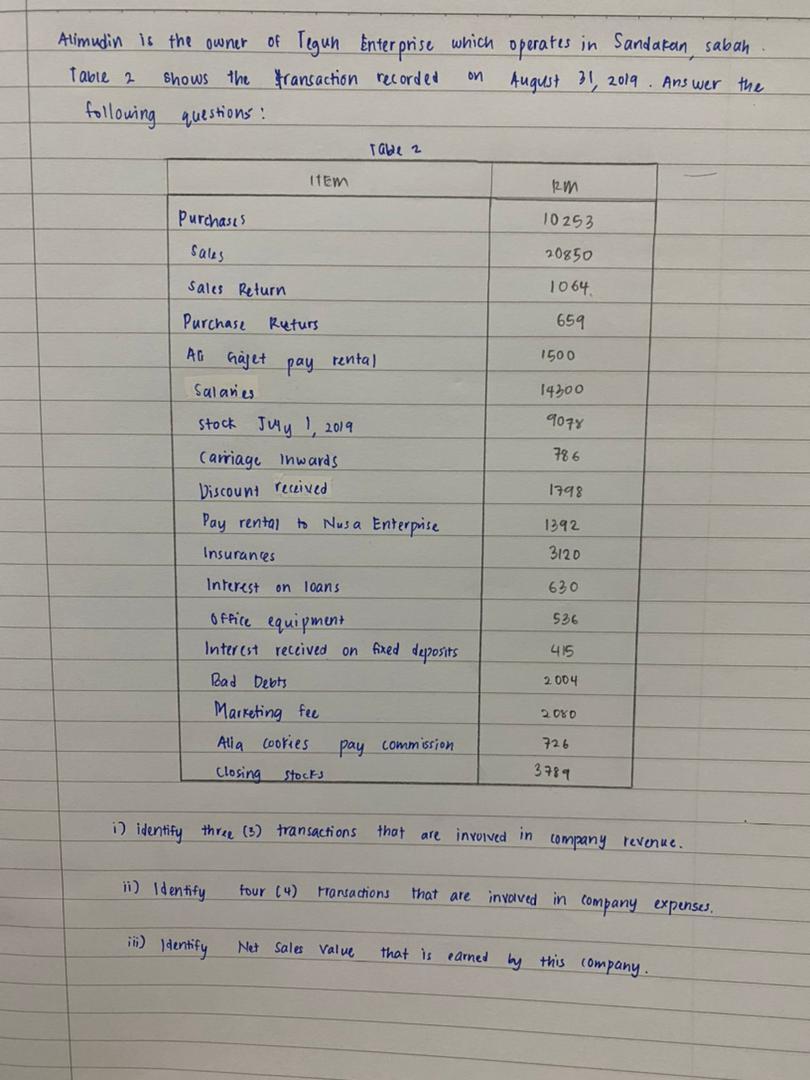 Alimudin is the owner of Teguh Enterprise which operates in Sandakan, sabah.
Table 2 shows the transaction recorded on August 31, 2019. Answer the
following questions:
Table 2
ITEM RM
Purchases 10253
Sales 20850
Sales Return 1064
Purchase Returs 659
AG Gajet pay rental 1500
Salaries 14300
Stock July 1, 2019 9078
Carriage Inwards 786
Discount received 1798
Pay rental to Nusa Enterprise 1392
Insurances 3120
Interest on loans 630
Office equipment 536
Interest received on fixed deposits 415
Bad Debts 2004
Marketing fee 2080
Alia cookies pay commission 726
Closing stocks 3789
i) identify three (3) transactions that are involved in company revenue.
ii) Identify four (4) transactions that are involved in company expenses.
iii) Identify Net Sales Value that is earned by this company.